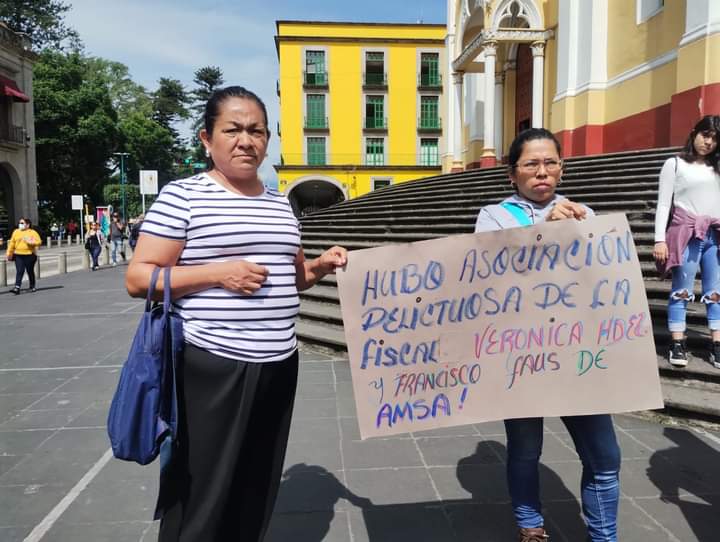 HUBO ASOCIACIÓN
DELICTUOSA DE LA
FISCAL VERONICA HDEZ.
Y FRANCISCO FAUS DE
AMSA!